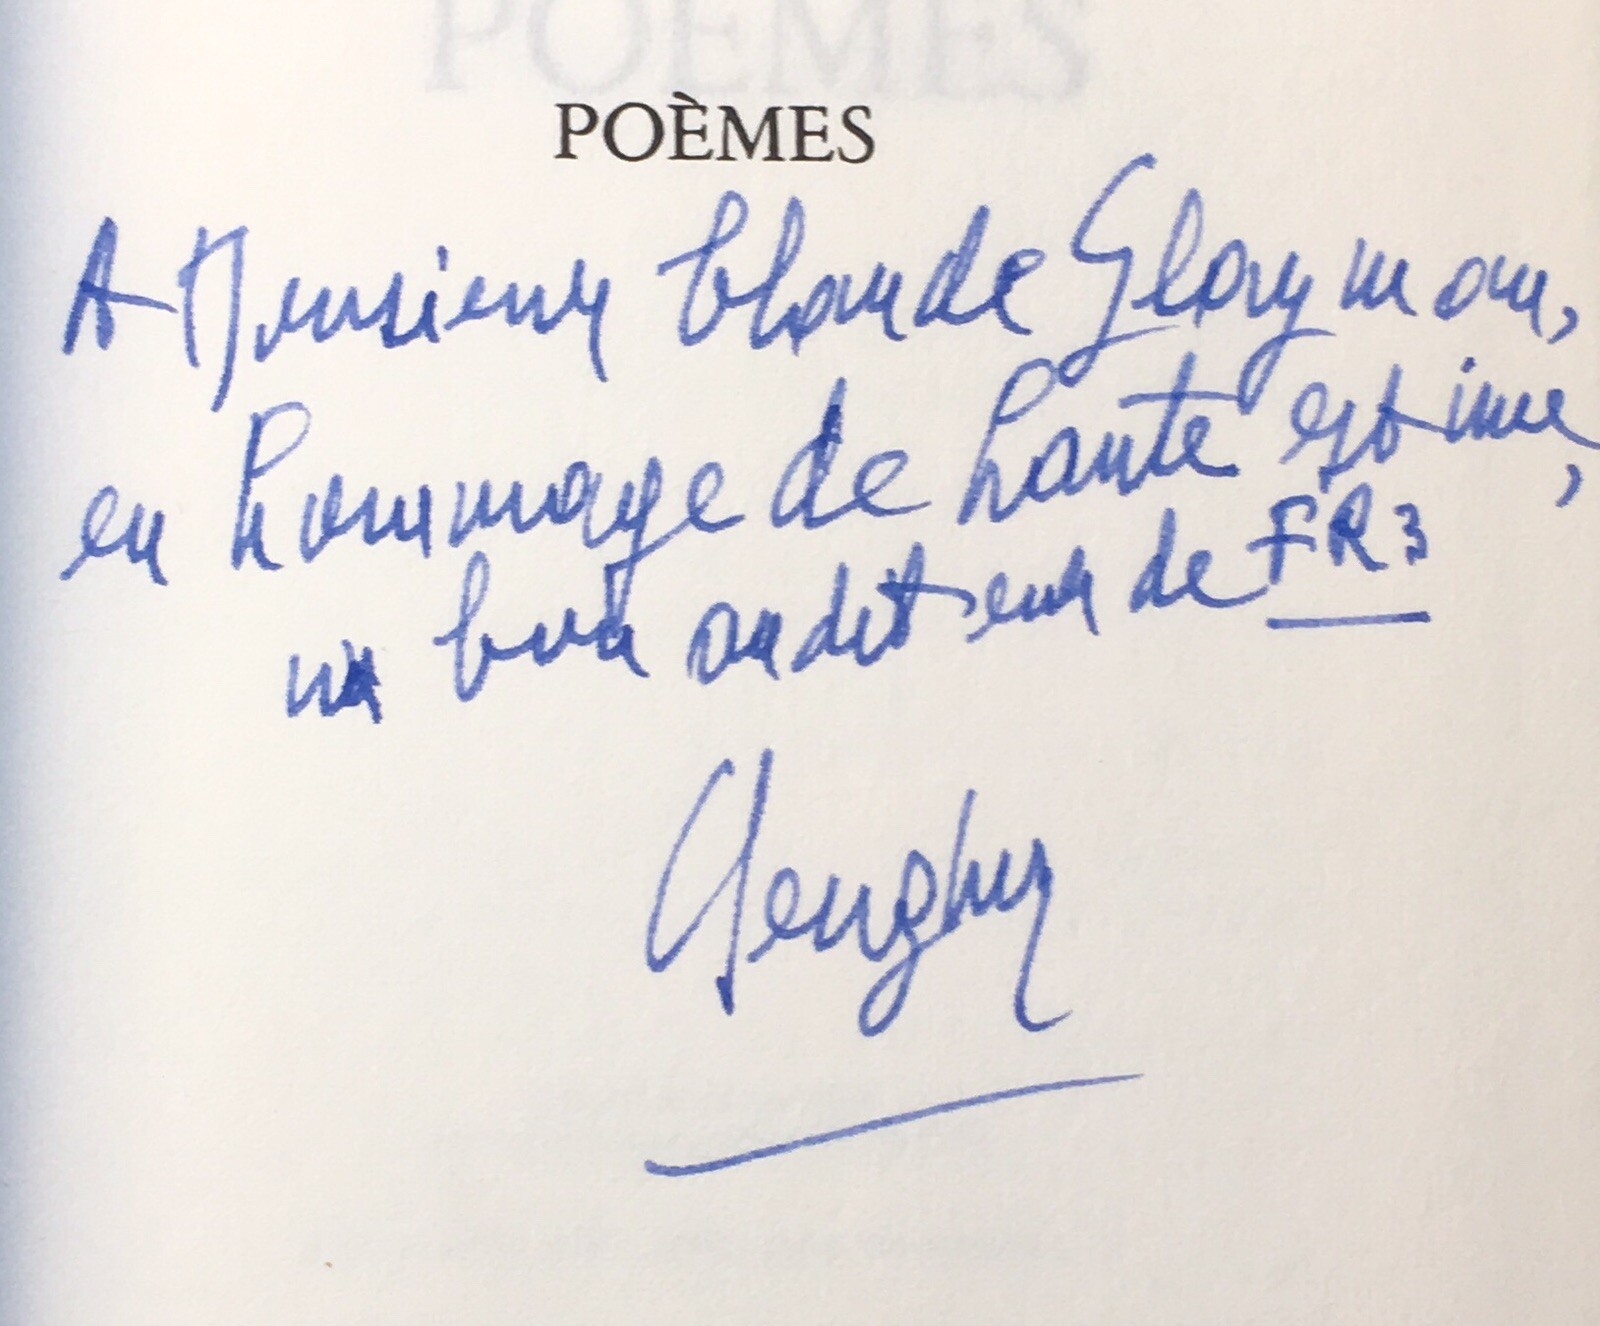 POÈMES
A Monsieur Claude Glayman,
en hommage de haute estime,
un bon auditeur de FR3
Senghor